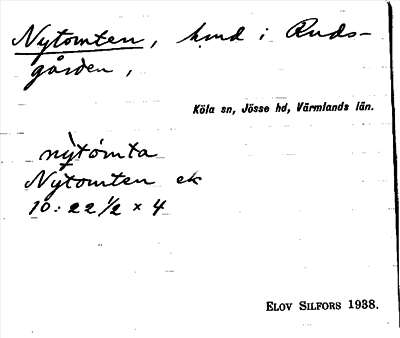 Nytomten, hmd i Ruds-
gården,
Köla sn, Jösse hd, Värmlands län.
nỳtómta
Nytomten ek
10: 22 1/2 x 4
ELOV SILFORS 1938.